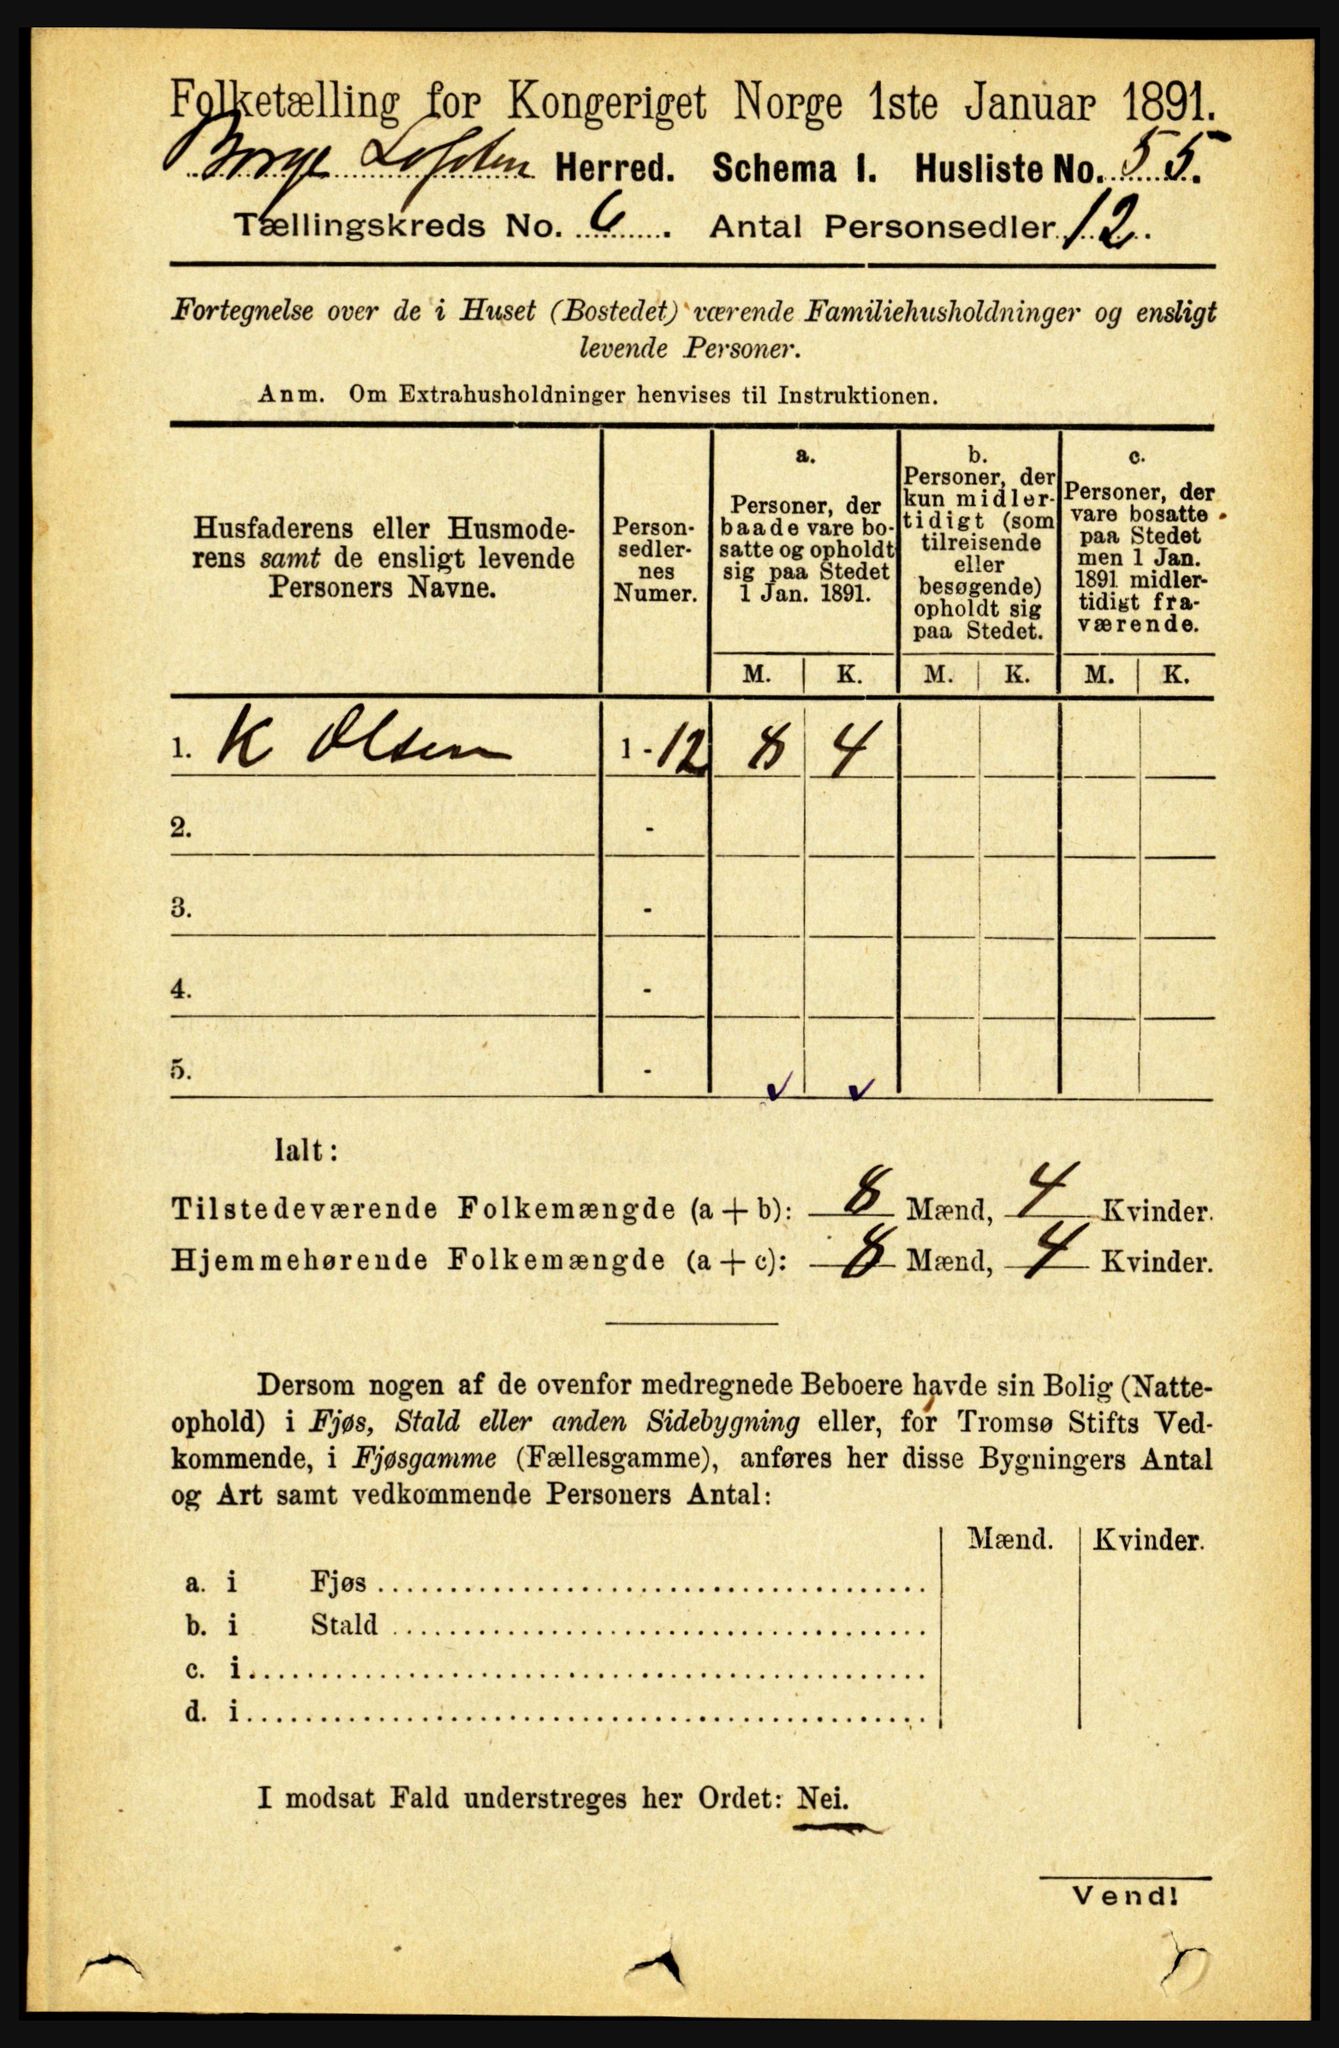 Folketælling for Kongeriget Norge 1ste Januar 1891.
Borge Lofoten Herred. Schema I. Husliste No. 55.
Tællingskreds No. 6. Antal Personsedler 12.
Fortegnelse over de i Huset (Bostedet) værende Familiehusholdninger og ensligt
levende Personer.
Anm. Om Extrahusholdninger henvises til Instruktionen.
Husfaderens eller Husmode-
rens samt de ensligt levende
Personers Navne.
Person-
sedler-
nes
Numer.
a.
Personer, der
baade vare bo-
satte og opholdt
sig paa Stedet
1 Jan. 1891.
b.
Personer, der
kun midler-
tidigt (som
tilreisende
eller
besøgende)
opholdt sig
paa Stedet.
c.
Personer, der
vare bosatte
paa Stedet
men 1 Jan.
1891 midler-
tidigt fra-
værende.
M. K. M. K. M. K.
1. K Olsen 1 - 12 8 4
2. -
3. -
4. -
5. - ✓ ✓
Ialt:
Tilstedeværende Folkemængde (a + b): 8 Mænd, 4 Kvinder.
Hjemmehørende Folkemængde (a + c): 8 Mænd, 4 Kvinder.
Dersom nogen af de ovenfor medregnede Beboere havde sin Bolig (Natte-
ophold) i Fjøs, Stald eller anden Sidebygning eller, for Tromsø Stifts Ved-
kommende, i Fjøsgamme (Fællesgamme), anføres her disse Bygningers Antal
og Art samt vedkommende Personers Antal:
Mænd. Kvinder.
a. i Fjøs
b. i Stald
c. i
d. i
I modsat Fald understreges her Ordet: Nei.
Vend!